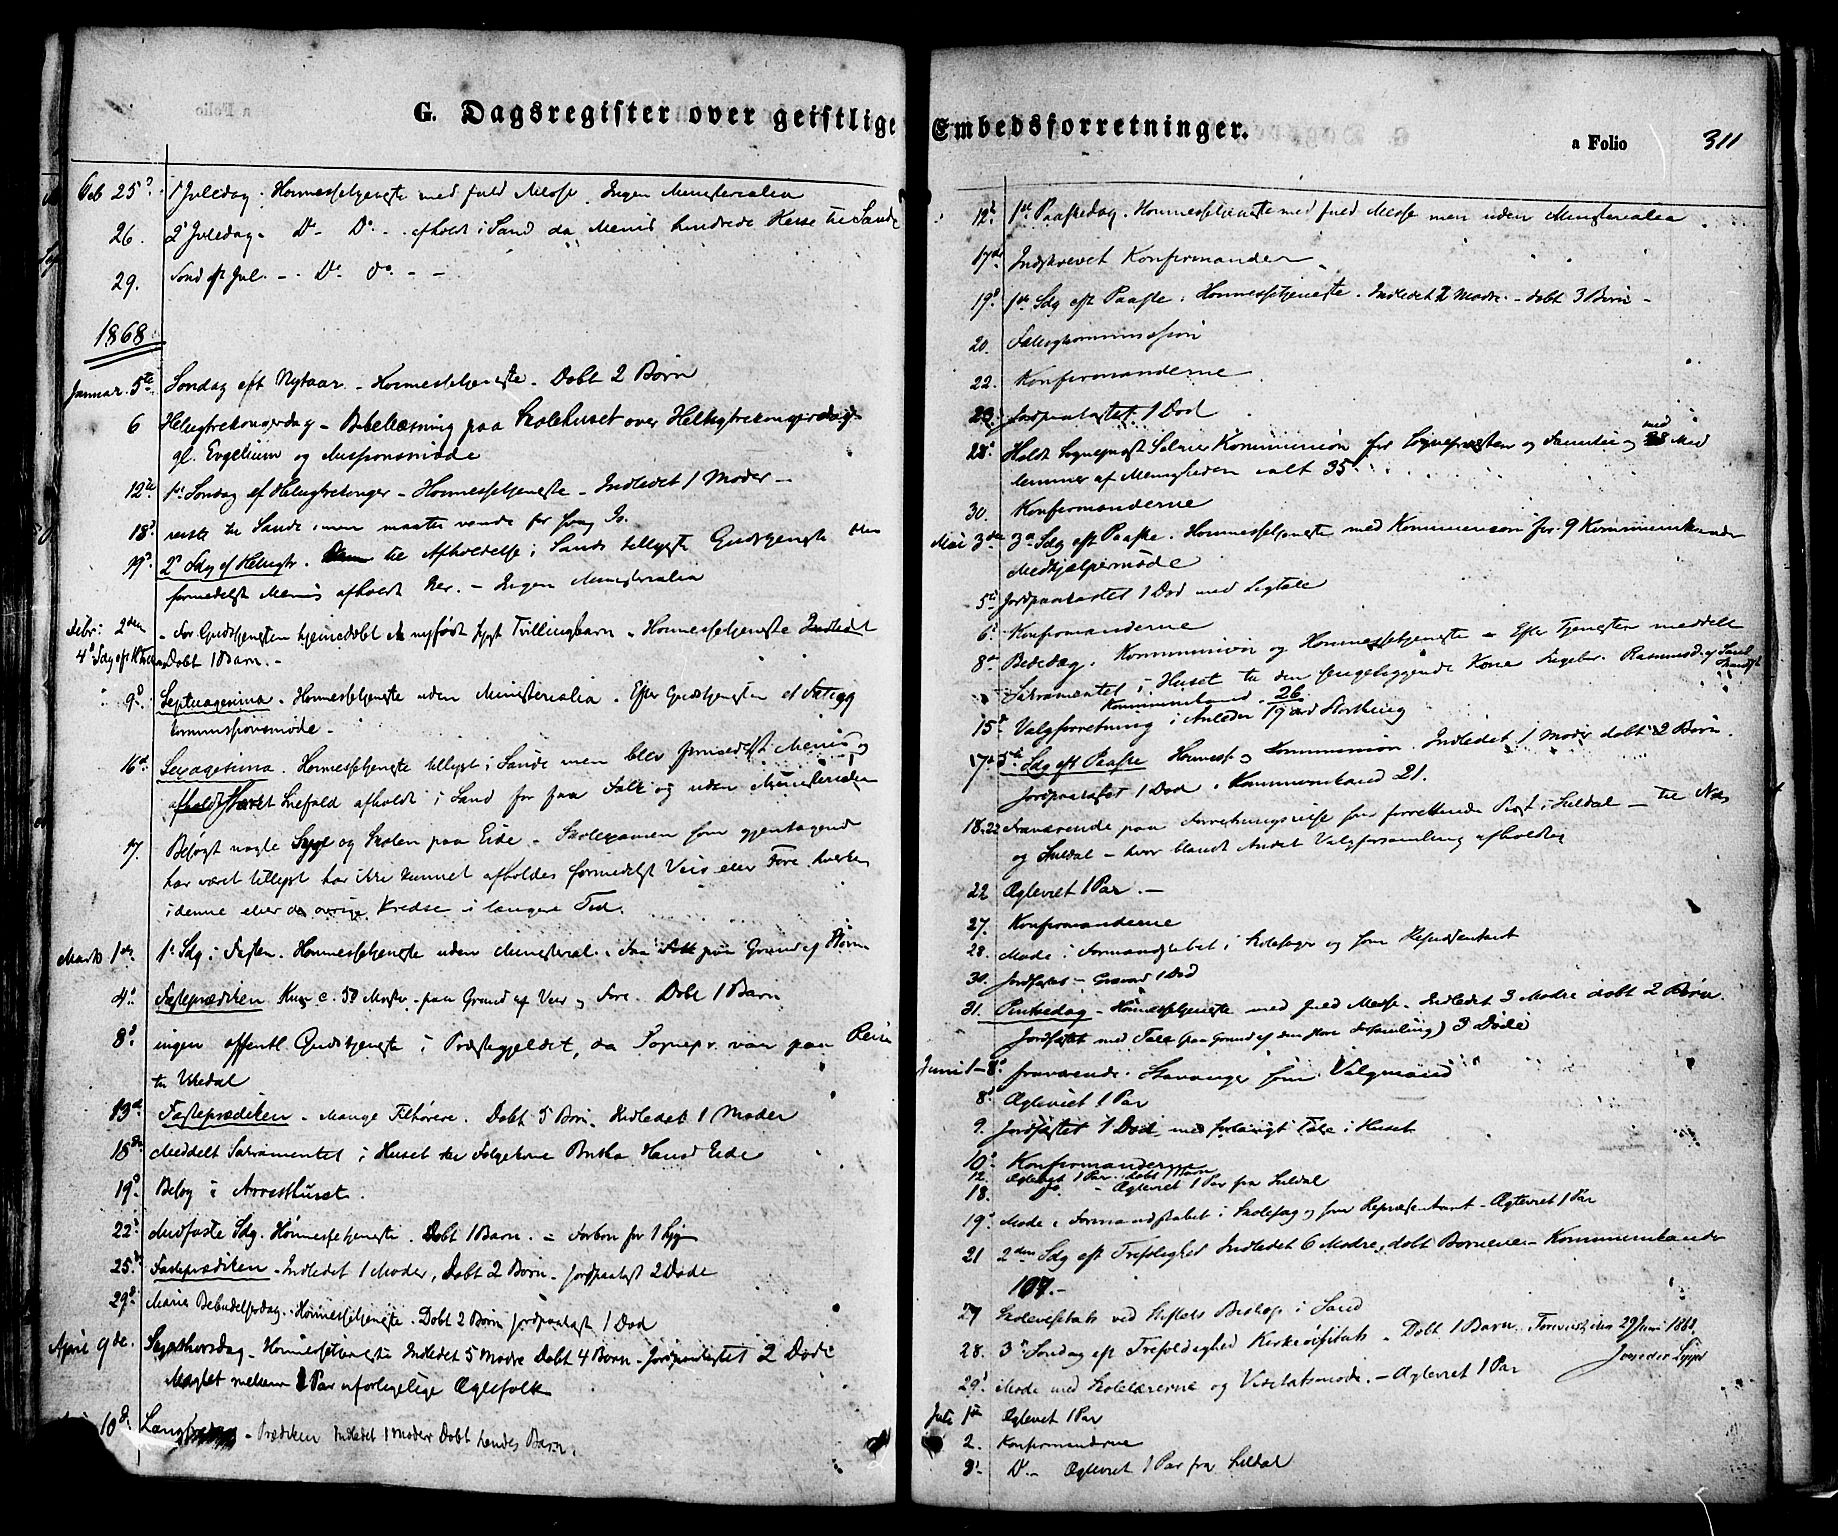 G. Dagsregister over geistlige Embedsforretninger.
a Folio 311
25d 1 Juledag. Hovmessetjeneste med fuld Messe. Ingen Ministerialia
26. 2 Juledag - Do Do - afholdt i Sand da Menis hindrede Reise til Sande
29. Sønd eft Jul. - Do do - -
1868.
Januar. 5te Søndag eft Nytaar - Hovmessetjeneste - Døbt 2 Børn
6 Helligtrekongersdag - Bibellæsning paa Skolehuset over Helligtrekongersdags
gl. Evgelium og Missionsmøde
12te 1ste Søndag ef Helligtrekonger - Hovmessetjeneste - Indledet 1 Moder -
18d reiste til Sande, men maatte vende for Is.
19d 2d Sdg ef Helligtr. til Afholdelse i Sands tillyste Gudstjeneste blev
formedelst Menis afholdt her. - Ingen Ministerialia
Febr: 2den - Før Gudstjenesten hjemmedøbt et nyfødt sygt Tvillingbarn - Hovmessetjeneste Indledet
4d Sdg eft H Døbt 1 Barn. -
9d Septuagesima - Hovmessetjeneste uden Ministerialia. Efter Gudstjenesten et Fattig
kommissionsmøde -
16d Sexagesima. Hovmessetjeneste tillyst i Sande men blev formedelst Menis og
Snefald afholdt i Sand for faa Folk og uden Ministerialia
17. Besøgt nogle Syge og Skolen paa Eide - Skoleexamen som gjentagende
har været tillyst har ikke kunnet afholdes formedelst Veir eller Føre hverken
i denne eller de øvrige Kredse i længere Tid.
Marts 1ste 1d Sdg i Fasten. Hovmessetjeneste uden Ministerial. - Faa Folk paa Grund af
4d Fasteprædiken Kun c. 50 Msker - paa Grund af Veir og Føre. Døbt 1 Barn
8d ingen offentl. Gudstjeneste i Præstegjeldet, da Sognepr. var paa Reise
til
13d Fasteprædiken - Mange Tilhørere. Døbt 5 Børn. Indledet 1 Moder
18d Meddelt Sakramentet i Huset til Hansd Eide
19d Besøg i Arresthuset.
22d Midfaste Sdg. Hovmessetjeneste. Døbt 1 Barn. - Forbøn for 1 Syg
25de Fasteprædiken - Indledet 1 Moder, Døbt 2 Børn - Jordpaakast 2 Døde
29d Mariæ Bebudelsesdag - Hovmessetjeneste. Døbt 2 Børn Jordpaakast 1 Død
April 9de. Skjærthorsdag - Hovmessetjeneste Indledet 5 Mødre Døbt 4 Børn - Jordpaakastet 2 Døde
Mæglet mellem 1 Par uforligelige Ægtefolk
10d Langfredag - Prædiken Indledet 1 Moder Døbt hendes Barn.
12d 1ste Paaskedag. Hovmessetjeneste med fuld Messe men uden Ministerialia
17de Indskrevet Konfirmander
19d 1ste Sdg eft Paaske. Hovmessetjeneste. Indledet 2 Mødre. - døbt 3 Børn -
20. Fattigkommission
22. Konfirmanderne
23. Jordpaakastet 1 Død
28d Holdt Sognepræst Kommunion for Sognepræsten og Familie og med Med
lemmer af Menigheden ialt 35.
30. Konfirmanderne
Mai 3die 3d Sdg eft Paaske. Hovmessetjeneste med Kommunion for 9 Kommunikander
Medhjælpermøde
5te Jordpaakastet 1 Død med Ligtale
6d Konfirmanderne
8d Bededag. Kommunion og Hovmessetjeneste - Efter Tjenesten meddelt
Sakramentet i Huset til den sengeliggende Kone Ingebor. Rasmusd. af Sand
Kommunikand 26
15d Valgforretning i Anledn 19 ord Storthing
17d 5te Sdg eft Paaske Hovmesst og Kommunion. Indledet 1 Moder døbt 2 Børn.
Jordpaakastet 1 Død. Kommunikand 21.
18-22 Fraværende paa Forretningsreise for forrettende Provst i Suldal - til Næs
og Suldal - hvor blandt Andet Valgforsamling afholdtes
22 Ægteviet 1 Par. -
27. Konfirmanderne
28. Møde i Formandskabet i Skolesager og som Repræsentant
30. Jordfæstet - Gravøl 1 Død
31. Pintsedag - Hovmessetjeneste med fuld Messe. Indledet 3 Mødre døbt 2 Børn.
Jordfæstet med Tale (paa Grund af den store Forsamling) 3 Døde
Juni 1-8d fraværende i Stavanger som Valgmand
8d Ægteviet 1 Par
9. Jordfæstet 1 Død med forlangt Tale i Huset
10d Konfirmanderne
12. Ægteviet 1 Par. døbt 1 Barn
18. do - Ægteviet 1 Par fra Suldal
19d Møde i Formandskabet i Skolesag og som Repræsentant - Ægteviet 1 Par
21 2den Sdg eft Trefoldighed Indledet 6 Mødre, døbt Børnene - Kommunikander
107. -
27 Skolevisitats ved Stiftets Biskop i Sand
28. 3d Søndag eft Trefoldighed Kirkevisitats - Døbt 1 Barn. Forevist den 29 Juni 1868.
29d Møde med Skolelærerne og Visitatsmøde. - Ægteviet 1 Par
Juli 1ste Ægteviet 1 Par
2. Konfirmanderne
3d Do - Ægteviet 1 Par fra Suldal